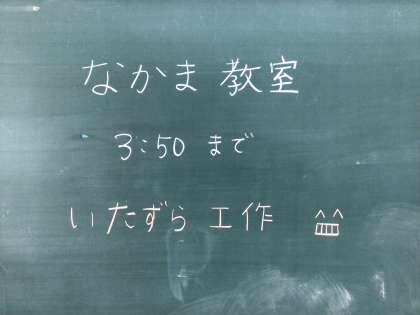 なかま 教室
3:50 まで
いたずら 工作